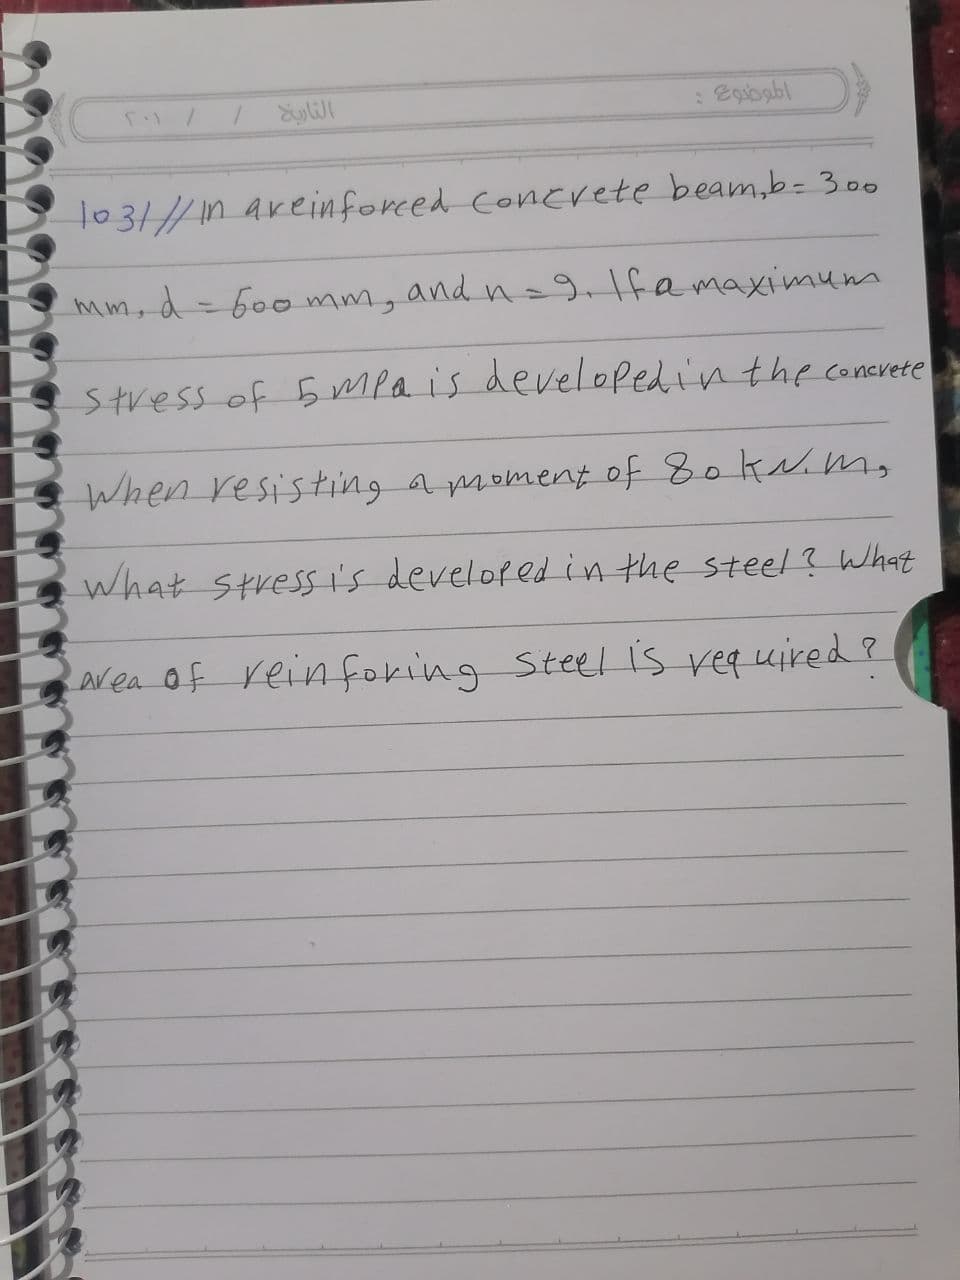 الموضوع :
التاريخ / / ٢٠١
1031// In a reinforced concrete beam, b = 300
mm, d = 500 mm, and n = 9. If a maximum
stress of 5 MPa is developed in the concrete
When resisting a moment of 80 kN.m,
What stress is developed in the steel? What
area of reinforing steel is required?